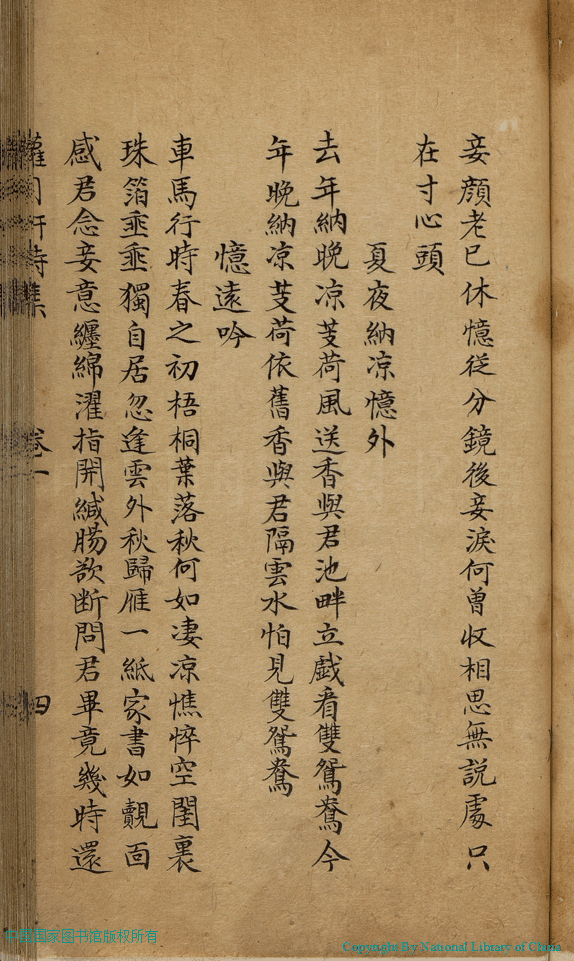 妾顏老已休憶從分鏡後妾淚何曾收相思無說處只
在寸心頭
夏夜納凉憶外
去年納晚凉芰荷風送香與君池畔立戯看雙鴛鴦今
年晚納凉芰荷依舊香與君隔雲水怕見雙鴛鴦
憶遠吟
車馬行時春之初梧桐葉落秋何如凄凉憔悴空閨裏
珠箔垂垂獨自居忽逢雲外秋歸雁一紙家書如覿面
感君念妾意纏綿濯指開緘腸欲断問君畢竟幾時還
卷一
四
中国国家图书馆版权所有
Copyright By National Library of China